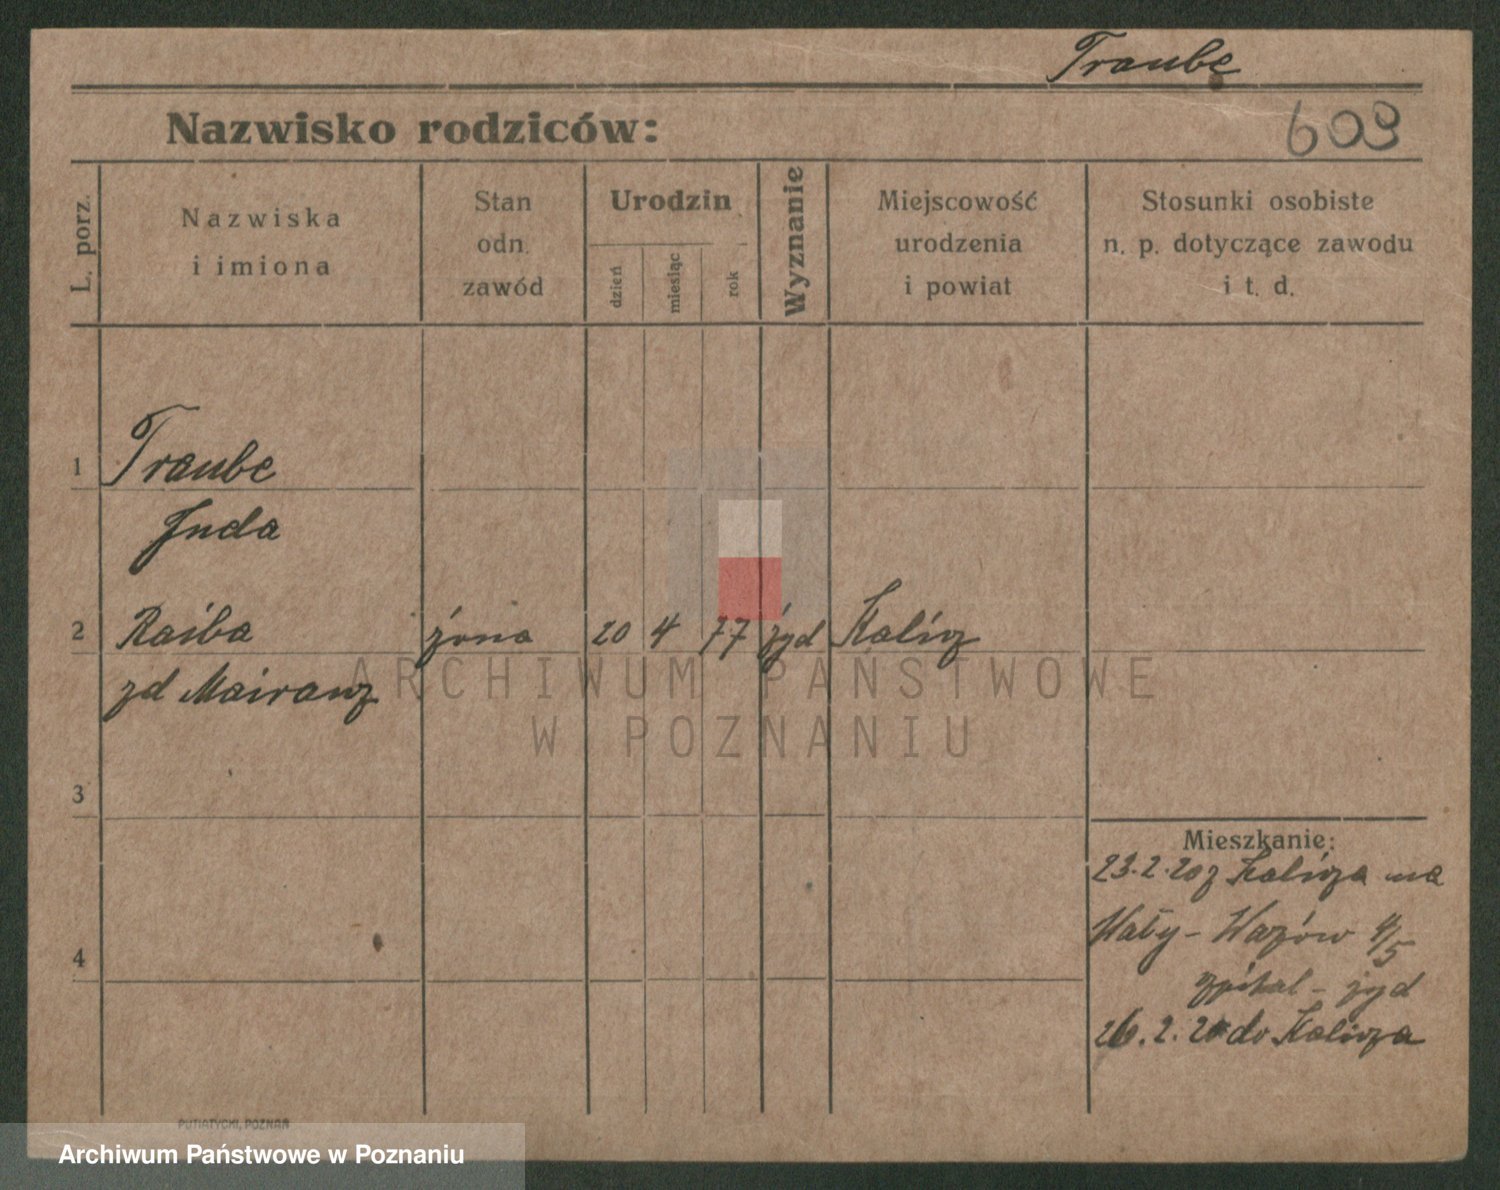 Traube
Nazwisko rodziców:
609
L. porz.
Nazwiska
i imiona
Stan
odn.
zawód
Urodzin
dzień
miesiąc
rok
Wyznanie
Miejscowość
urodzenia
i powiat
Stosunki osobiste
n. p. dotyczące zawodu
i t. d.
1
Traube
Juda
2
Rajba żona 20 4 77 żyd Kalisz
zd
3
Mieszkanie:
23.2.20 z Kalisza na
Wały - Wazów 4/5
szpital - żyd
4
26.2.20 do Kalisza
ARCHIWUM PAŃSTWOWE
W POZNANIU
PUTIATYCKI, POZNAŃ
Archiwum Państwowe w Poznaniu